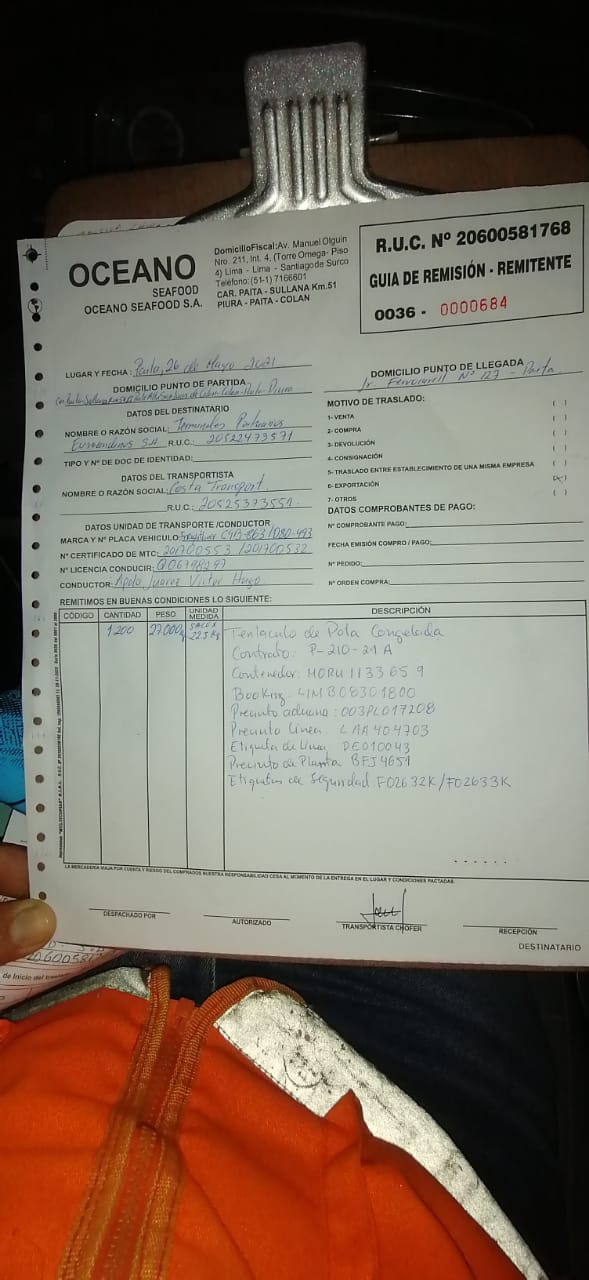 OCEANO
SEAFOOD
OCEANO SEAFOOD S.A.
Domicilio Fiscal: Av. Manuel Olguin
Nro. 211, Int. 4, (Torre Omega- Piso
4) Lima - Lima - Santiago de Surco
Teléfono: (51-1) 7166601
CAR. PAITA - SULLANA Km.51
PIURA - PAITA - COLAN
R.U.C. Nº 20600581768
GUIA DE REMISIÓN - REMITENTE
0036 - 0000684
LUGAR Y FECHA: Paita, 26 de Mayo 2021
DOMICILIO PUNTO DE PARTIDA
DOMICILIO PUNTO DE LLEGADA
Jr. Ferrocarril Nº 127 - Paita.
DATOS DEL DESTINATARIO
NOMBRE O RAZÓN SOCIAL: Terminales Portuarios
Euroandinos S.A. R.U.C.: 20522473571
TIPO Y Nº DE DOC DE IDENTIDAD:
DATOS DEL TRANSPORTISTA
NOMBRE O RAZÓN SOCIAL: Costa Transport.
R.U.C.: 20525373551.
DATOS UNIDAD DE TRANSPORTE /CONDUCTOR
MARCA Y Nº PLACA VEHICULO:
Nº CERTIFICADO DE MTC: 201700553 / 201700532
Nº LICENCIA CONDUCIR: Q06198297
CONDUCTOR: Apolo Juarez Victor Hugo
MOTIVO DE TRASLADO:
1- VENTA ( )
2- COMPRA ( )
3- DEVOLUCIÓN ( )
4- CONSIGNACIÓN ( )
5- TRASLADO ENTRE ESTABLECIMIENTO DE UNA MISMA EMPRESA ( )
6- EXPORTACIÓN (x)
7- OTROS ( )
DATOS COMPROBANTES DE PAGO:
Nº COMPROBANTE PAGO:
FECHA EMISIÓN COMPRO / PAGO:
Nº PEDIDO:
Nº ORDEN COMPRA:
REMITIMOS EN BUENAS CONDICIONES LO SIGUIENTE:
CÓDIGO CANTIDAD PESO UNIDAD MEDIDA DESCRIPCIÓN
1200 27000 22.5 Kg Tentaculo de Pota Congelada
Contrato: P-210-21 A
Contenedor: MORU 1133 65 9
Booking: LIMB08301800
Precinto aduana: 003PL017208
Precinto Linea: LAA404703
Etiqueta de Linea DE010043
Precinto de Planta BFJ4651
Etiquetas de Seguridad F02632K/F02633K
LA MERCADERIA VIAJA POR CUENTA Y RIESGO DEL COMPRADOS NUESTRA RESPONSABILIDAD CESA AL MOMENTO DE LA ENTREGA EN EL LUGAR Y CONDICIONES PACTADAS.
DESPACHADO POR
AUTORIZADO
TRANSPORTISTA CHOFER
RECEPCIÓN
DESTINATARIO